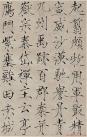 起翦頗牧用軍最精
宣威沙漠馳譽丹青
九州禹跡百郡秦并
嶽宗泰岱禪主云亭
鴈門紫塞雞田赤城